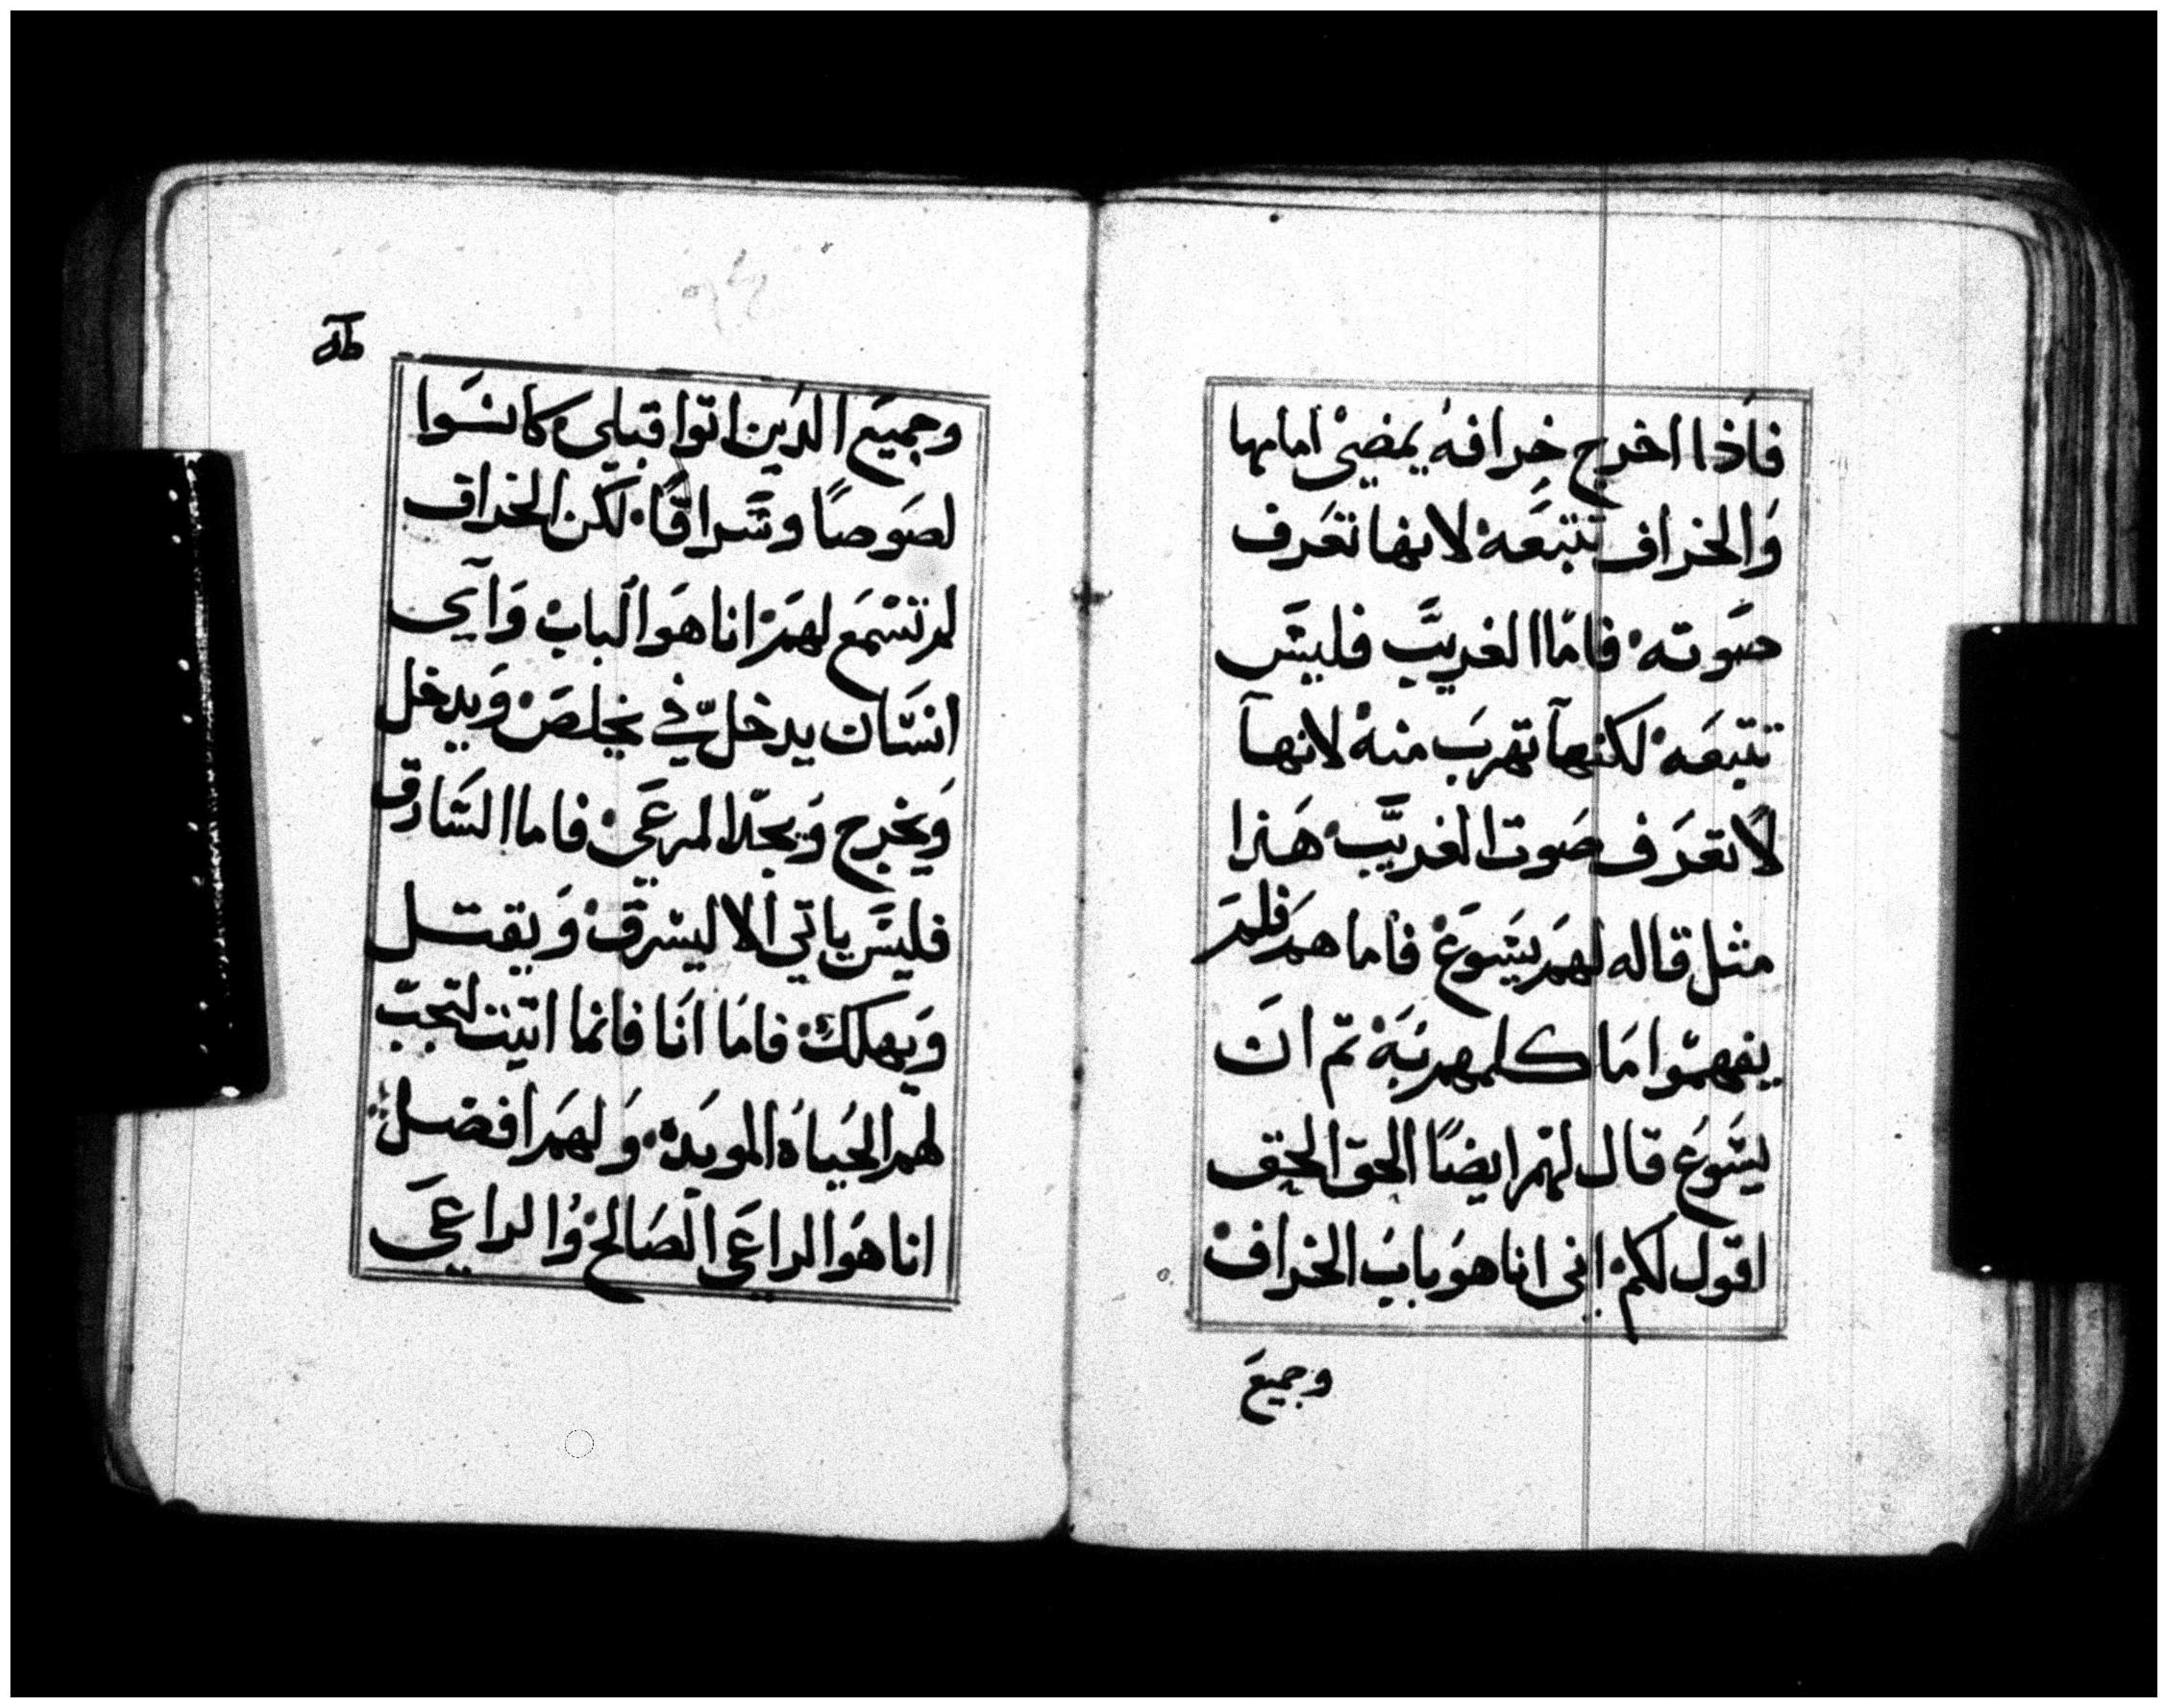 فاذا اخرج خرافه يمضي امامها
والخراف تتبعه لانها تعرف
صوته فاما الغريب فليس
تتبعه لكنها تهرب منه لانها
لا تعرف صوت الغريب هذا
مثل قاله لهم يسوع فاما هم فلم
يفهموا ما كلمهم به ثم ان
يسوع قال لهم ايضًا الحق الحق
اقول لكم اني انا هو باب الخراف
وجميع
وجميع الذين اتوا قبلي كانوا
لصوصًا وسراقًا لكن الخراف
لم تسمع لهم انا هو الباب واي
انسان يدخل في يخلص ويدخل
ويخرج ويجد المرعي فاما السارق
فليس ياتي الا ليسرق ويقتل
ويهلك فاما انا فانما اتيت لتجب
لهم الحياه الموبدة ولهم افضل
انا هو الراعي الصالح والراعي